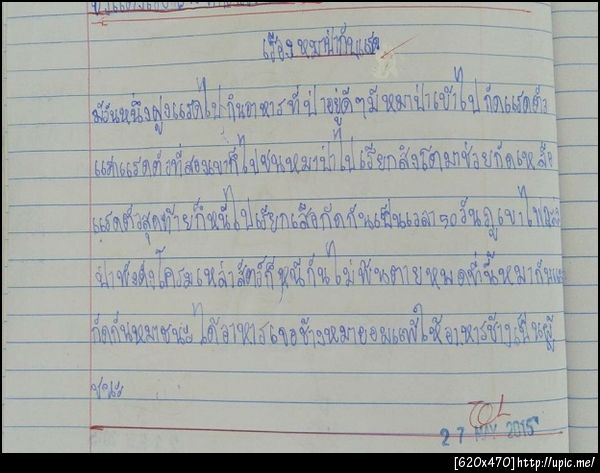 เรื่องหมาป่ากับแรด
มีวันหนึ่งฝูงแรดไปกินอาหารที่ป่าอยู่ดีๆมีหมาป่าเข้าไปกัดแรดตัว
แรกแรดตัวที่สองเขาก็ไปชนหมาป่าไปเรียกสิงโตมาช่วยกัดเหลือ
แรดตัวสุดท้ายก็หนีไปเรียกเสือกัดกันเป็นเวลา50วันภูเขาไฟ
ป่าพังดังโครมเหล่าสัตว์ก็หนีกันไม่พ้นตายหมดทีนี้หมากับ
กัดกันหมาชนะได้อาหารเจอช้างหมายอมแพ้ให้อาหารช้างเป็นผู้
ชนะ
27 MAY 2015
[620x470]http://upic.me/